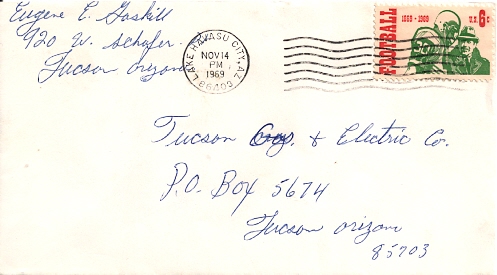 Eugene E. Gaskill
920 W. Schafer
Tucson Arizona
LAKE HAVASU CITY, AZ
NOV 14
PM
1969
86403
FOOTBALL
1869-1969
U.S. 6c
Tucson Gas. & Electric Co.
P.O. Box 5674
Tucson Arizona
85703